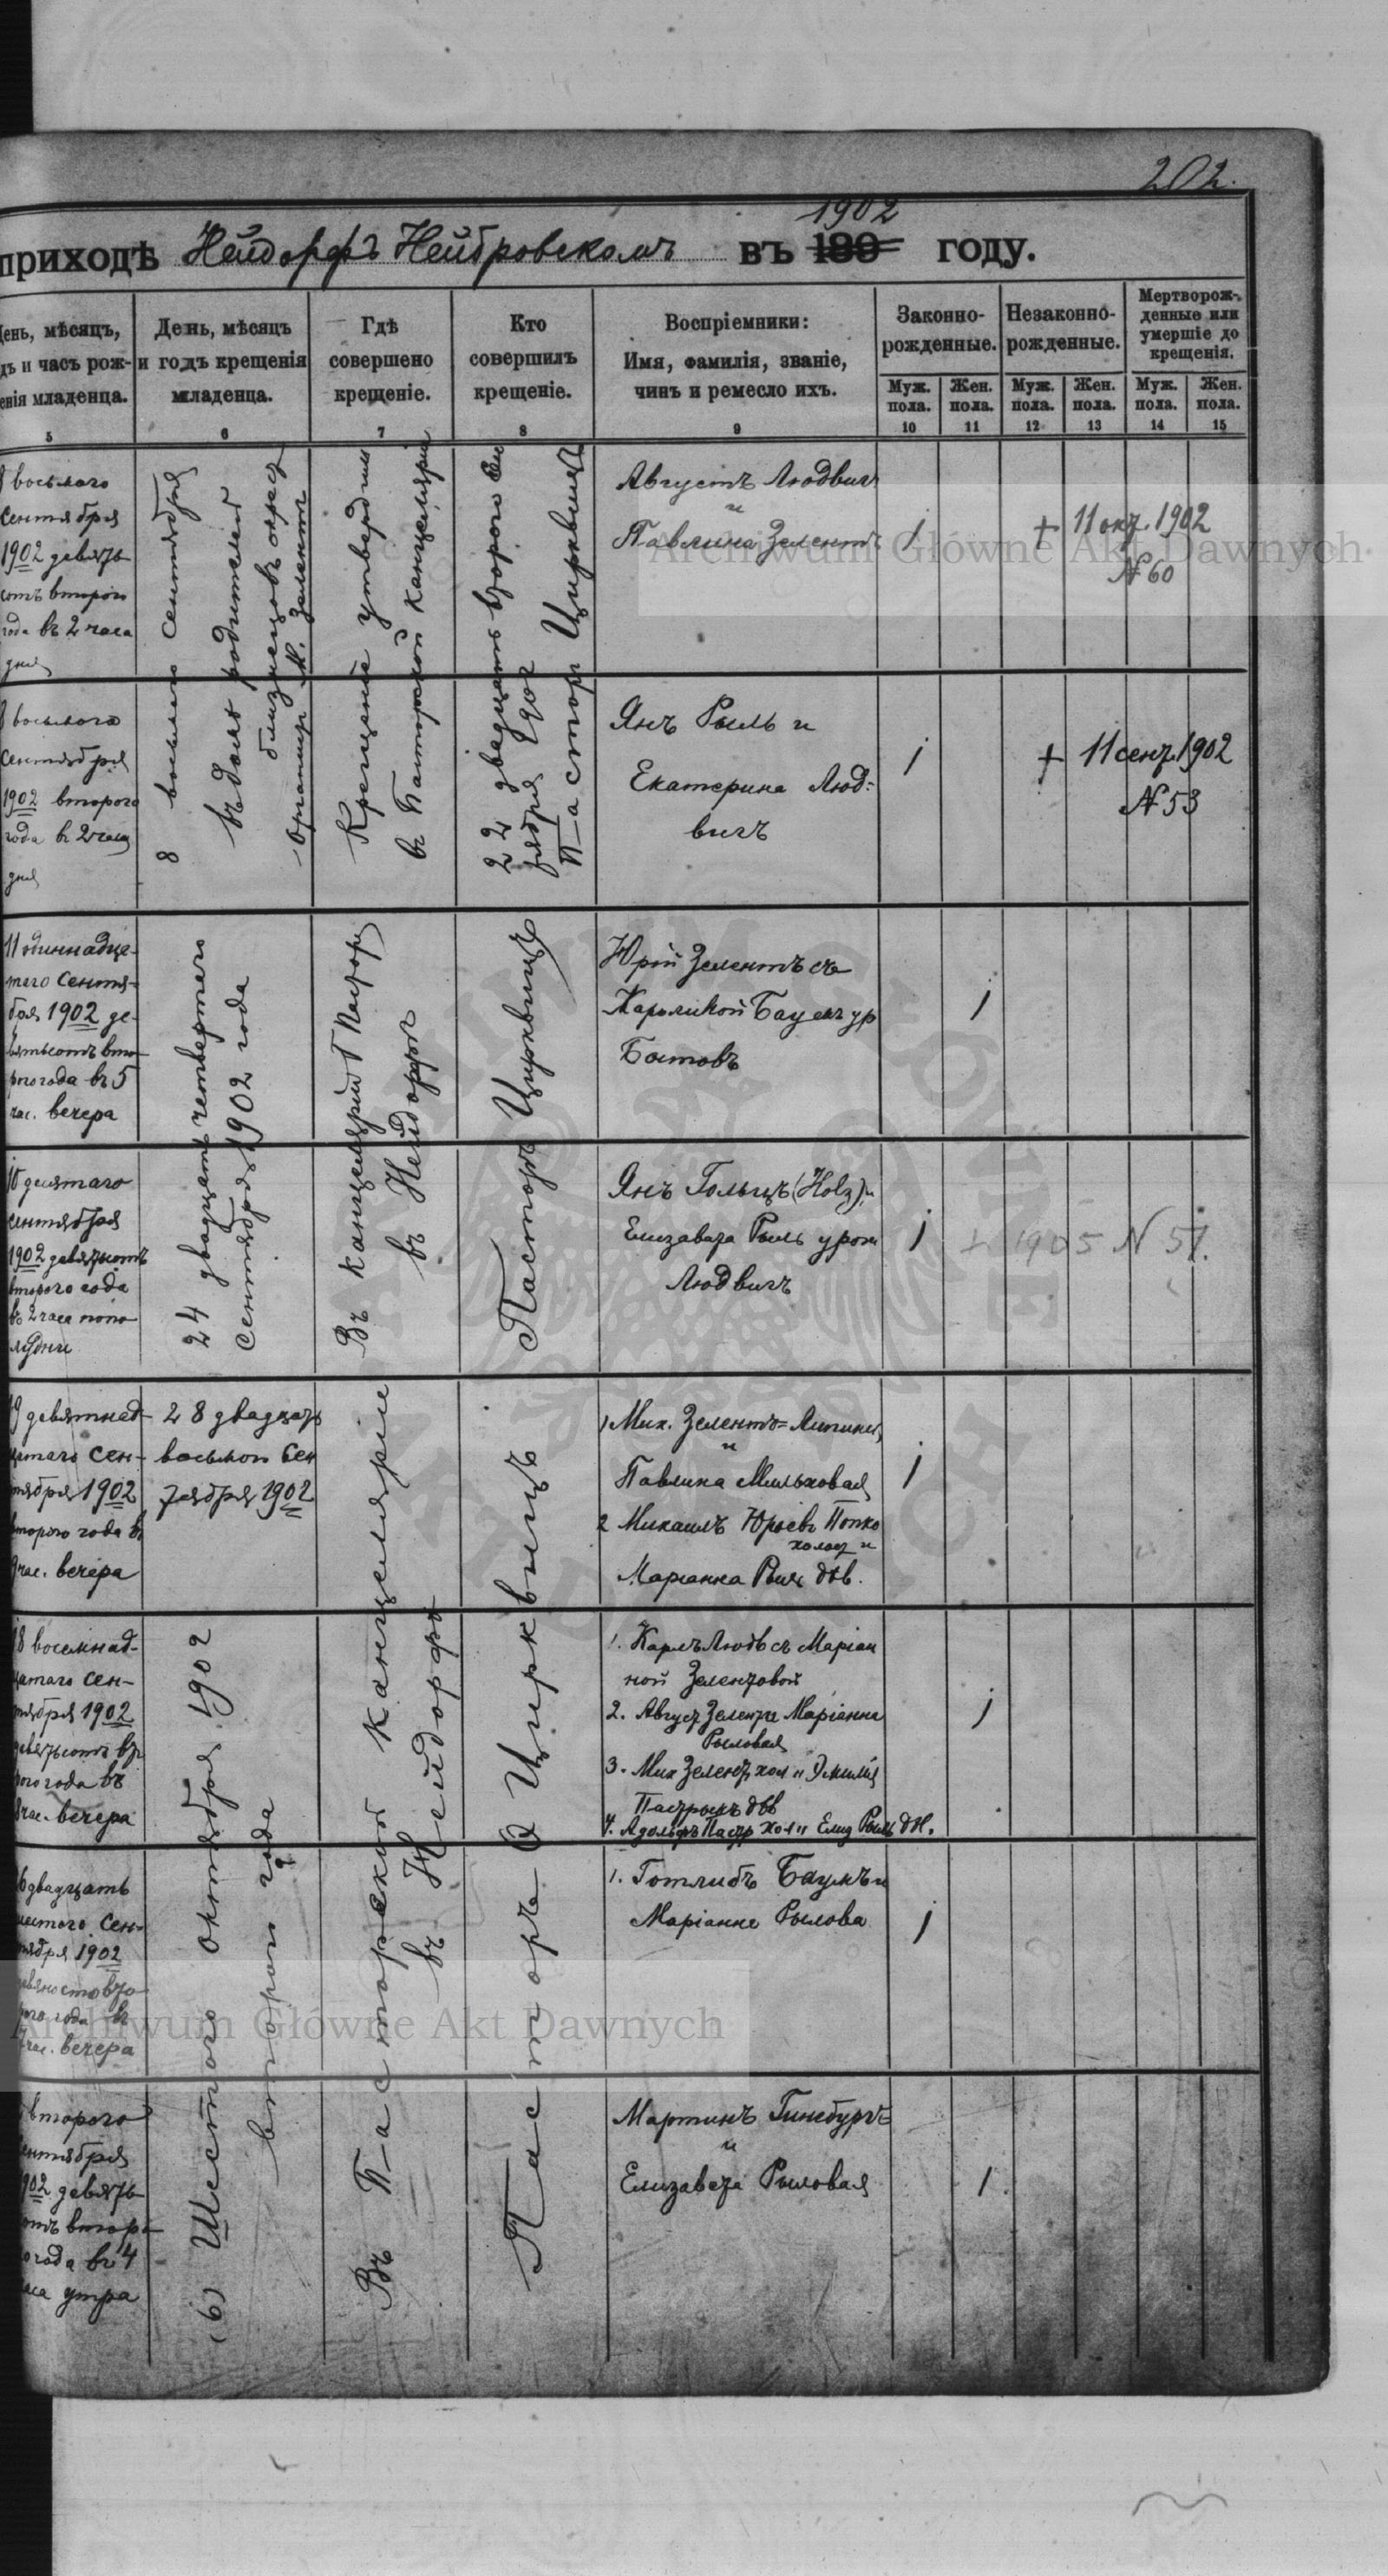 202.
1902
приходѣ Нейдорфъ Нейбровскомъ въ 189 году.
День, мѣсяцъ,
дъ и часъ рож-
енія младенца.
5
День, мѣсяцъ
и годъ крещенія
младенца.
6
Гдѣ
совершено
крещеніе.
7
Кто
совершилъ
крещеніе.
8
Воспріемники:
Имя, фамилія, званіе,
чинъ и ремесло ихъ.
9
Законно-
рожденные.
Незаконно-
рожденные.
Мертворож-
денные или
умершіе до
крещенія.
Муж.
пола.
10
Жен.
пола.
11
Муж.
пола.
12
Жен.
пола.
13
Муж.
пола.
14
Жен.
пола.
15
восьмого
сентября
1902 девять
сотъ второго
года въ 2 часа
дня
8 восьмого сентября
въ домѣ родителей
близнецовъ
М. Зелентъ
Крещеніе утвердилъ
въ Пасторской канцеляріи
22 двадцать второго Сен
тября 1902
Пасторъ Цирквицъ
Августъ Людвигъ
и
Павлина Зелентъ
1
+ 11 окт. 1902
№ 60
восьмого
сентября
1902 второго
года въ 2 часа
дня
Янъ Рыль и
Екатерина Люд=
вигъ
1
+ 11 сент. 1902
№ 53
11 одиннадца-
таго сентя-
бря 1902 де-
вятьсотъ вто-
рого года въ 5
час. вечера
24 двадцать четвертаго
сентября 1902 года
Въ канцеляріи Пастора
въ Нейдорфѣ
Пасторъ Цирквицъ
Юрій Зелентъ съ
Каролиной Баумъ ур
Бытовъ
1
10 десятаго
сентября
1902 девятьсотъ
второго года
въ 2 часа попо
лудни
Янъ Гольцъ (Holz) и
Елизавета Рыль урож
Людвигъ
1
+ 1905 N 51.
19 девятнад-
цатаго сен-
тября 1902
второго года въ
час. вечера
28 двадцать
восьмого Сен
тября 1902
1 Мих. Зелентъ=
и
Павлина Мильховая
2 Михаилъ Юрьевъ Попко
холост и
Маріанна Рыль дѣв.
1
18 восемнад-
цатаго сен-
тября 1902
девятьсотъ вто
рого года въ
час. вечера
(6) Шестого октября 1902
второго года
Въ Пасторской канцеляріи
въ Нейдорфѣ
Пасторъ О Цирквицъ
1. Карлъ Людв съ Маріан
ной Зелентовой
2. Август Зелент и Маріанна
Рыловая
3. Мих Зелентъ хол и Эмилія
Пастрыкъ дѣв
4. Адольфъ Пастр хол и Елиз Рыль дѣв.
1
26 двадцать
шестого Сен-
тября 1902
девяносто вто
рого года въ
час. вечера
1. Готлибъ Баумъ и
Маріанне Рылова
1
второго
сентября
1902 девять
сотъ второ
года въ 4
часа утра
Мартинъ Гинсбургъ
и
Елизавета Рыловая
1
Archiwum Główne Akt Dawnych
Archiwum Główne Akt Dawnych